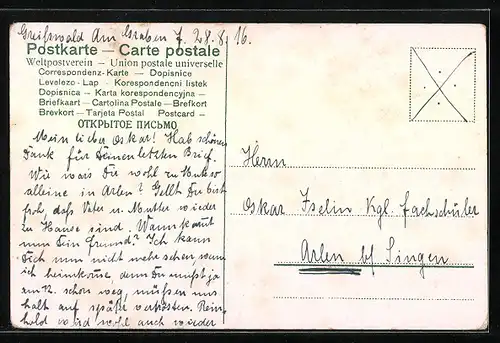 Greifswald Am Graben 7. 28.8.16.
Postkarte — Carte postale
Weltpostverein — Union postale universelle
Correspondenz-Karte — Dopisnice
Levelezo-Lap — Korespondencni listek
Dopisnica — Karta korespondencyjna —
Briefkaart — Cartolina Postale — Brefkort
Brevkort — Tarjeta Postal Postcard —
ОТКРЫТОЕ ПИСЬМО
Mein lieber Oskar! Hab schönen
Dank für Deinen letzten Brief.
Wie war's Du wohl zu Hause so
alleine in Arlen? Gellt Du bist
froh, daß Vater u. Mutter wieder
zu Hause sind. Wann kommt
nun Dein Freund? Ich kann
Dich nun nicht mehr sehen, wenn
ich heimkomme, denn Du mußt ja
am 12. schon weg, müßen uns
halt auf später vertrösten. Rein-
hold wird wohl auch wieder
Herrn
Oskar Iselin Kgl. Fachschüler
Arlen b/ Singen